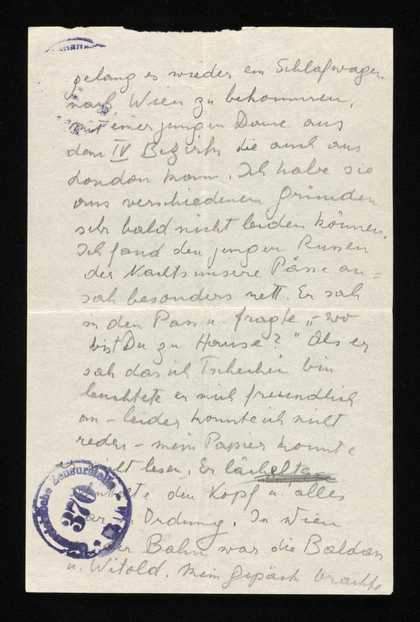 gelang es wieder ein Schlafwagen
nach Wien zu bekommen,
mit einer jungen Dame aus
dem IV Bezirk die auch aus
London kam. Ich habe sie
aus verschiedenen Gründen
sehr bald nicht leiden können.
Ich fand den jungen Russen
der Nachts unsere Pässe an=
sah besonders nett. Er sah
in den Pass u. fragte „- wo
bist Du zu Hause?" Als er
sah das ich Tschechin bin
leuchtete er mich freundlich
an - leider konnte ich nicht
reden - mein Papier konnte
nicht lesen. Er lächelte
den Kopf u alles
war Ordnung. In Wien
der Bahn war die
u. Witold. Mein Gepäck brachte
Zensurstelle
370